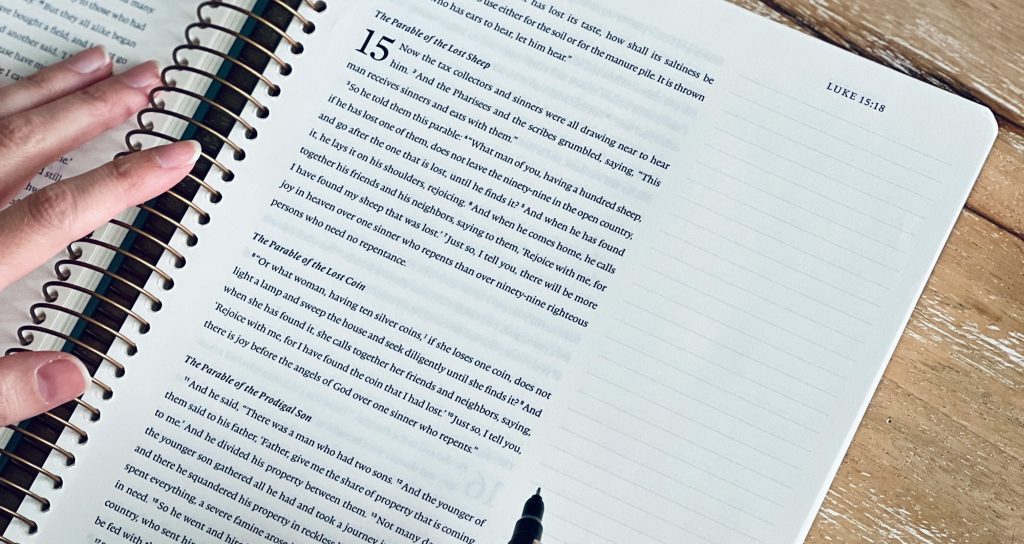 to those who had
"But they all alike began
bought a field, and
another said,
go
has lost its taste, how shall its saltiness be
use either for the soil or for the manure pile. It is thrown
who has ears to hear, let him hear."
LUKE 15:18
The Parable of the Lost Sheep
15 Now the tax collectors and sinners were all drawing near to hear
him. 2 And the Pharisees and the scribes grumbled, saying, "This
man receives sinners and eats with them."
3 So he told them this parable: 4 "What man of you, having a hundred sheep,
if he has lost one of them, does not leave the ninety-nine in the open country,
and go after the one that is lost, until he finds it? 5 And when he has found
it, he lays it on his shoulders, rejoicing. 6 And when he comes home, he calls
together his friends and his neighbors, saying to them, 'Rejoice with me, for
I have found my sheep that was lost.' 7 Just so, I tell you, there will be more
joy in heaven over one sinner who repents than over ninety-nine righteous
persons who need no repentance.
The Parable of the Lost Coin
8 "Or what woman, having ten silver coins, if she loses one coin, does not
light a lamp and sweep the house and seek diligently until she finds it? 9 And
when she has found it, she calls together her friends and neighbors, saying,
'Rejoice with me, for I have found the coin that I had lost.' 10 Just so, I tell you,
there is joy before the angels of God over one sinner who repents."
The Parable of the Prodigal Son
11 And he said, "There was a man who had two sons. 12 And the younger of
them said to his father, 'Father, give me the share of property that is coming
to me.' And he divided his property between them. 13 Not many da
the younger son gathered all he had and took a journey i
and there he squandered his property in reckless
spent everything, a severe famine arose
in need. 15 So he went and hir
country, who sent him
be fed with the